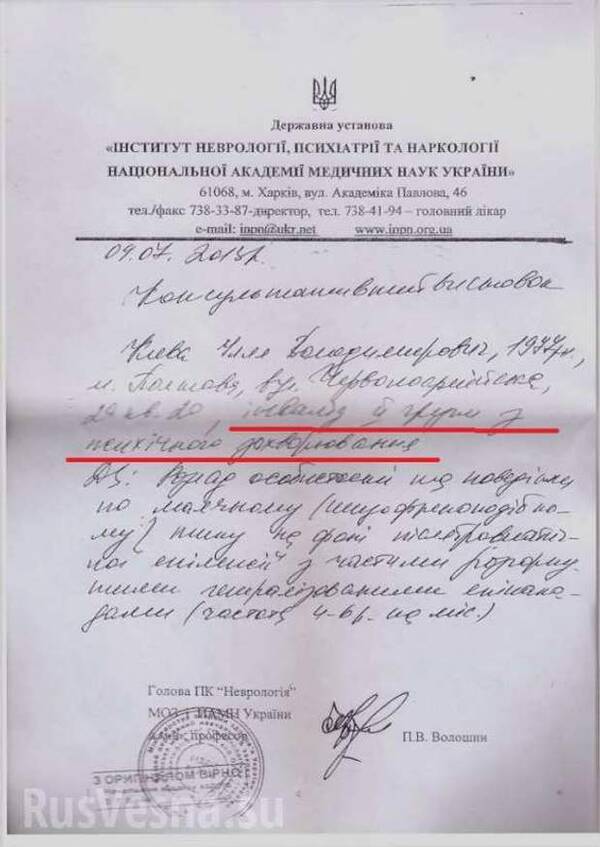 Державна установа
«ІНСТИТУТ НЕВРОЛОГІЇ, ПСИХІАТРІЇ ТА НАРКОЛОГІЇ
НАЦІОНАЛЬНОЇ АКАДЕМІЇ МЕДИЧНИХ НАУК УКРАЇНИ»
61068, м. Харків, вул. Академіка Павлова, 46
тел./факс 738-33-87-директор, тел. 738-41-94 – головний лікар
e-mail: inpn@ukr.net www.inpn.org.ua
09.07. 2013р.
Консультативний висновок
Ілля Володимирович, 1977р.,
м. Полтава, вул. Червоноармійська,
кв. 20, інвалід ІІ групи з
психічного захворювання
Розлад особистості та поведінки
по (шизофреноподібно-
му) типу на фоні посттравматич-
ної епілепсії з частими
генералізованими епінапа-
дами (частота 4-6 р. на міс.)
Голова ПК "Неврологія"
МОЗ НАМН України
професор
П.В. Волошин
З ОРИГІНАЛОМ ВІРНО
RusVesna.su